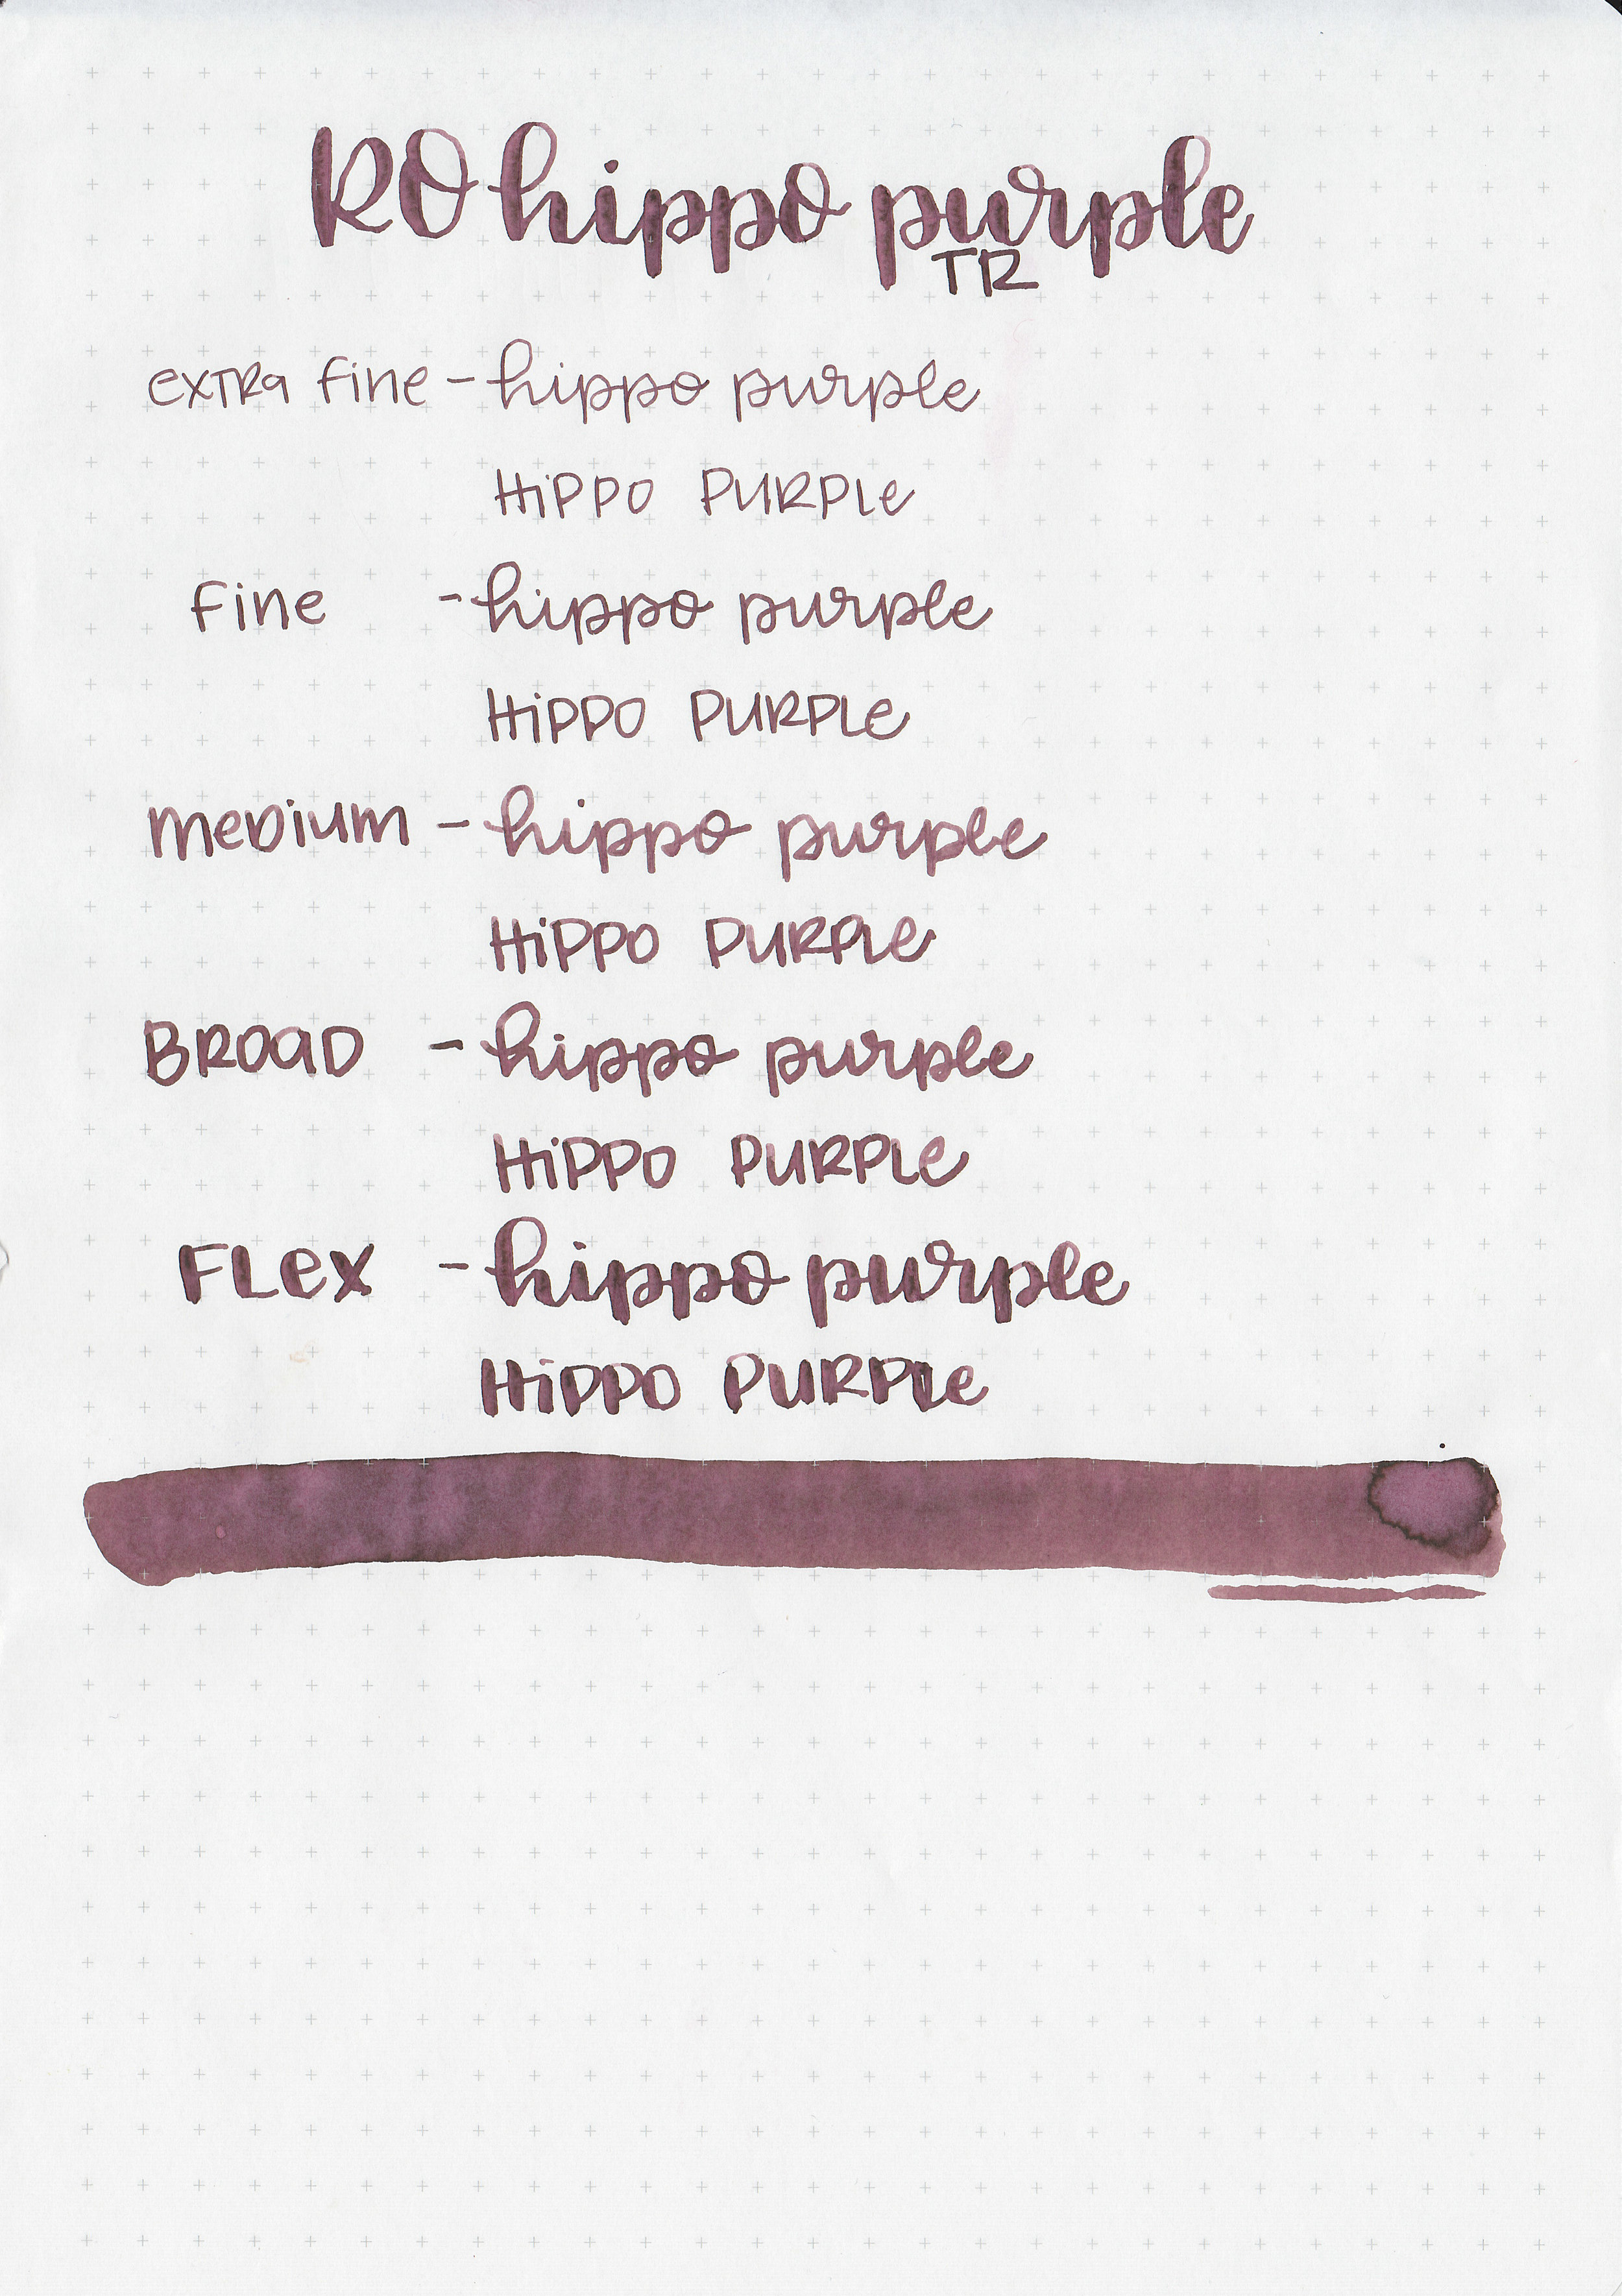 RO hippo purple
TR
extra fine - hippo purple
HiPPO PURPLe
fine - hippo purple
HiPPO PURPLe
meDium - hippo purple
HiPPO PURPLe
BROaD - hippo purple
HiPPO PURPLe
FLex - hippo purple
HiPPO PURPLe